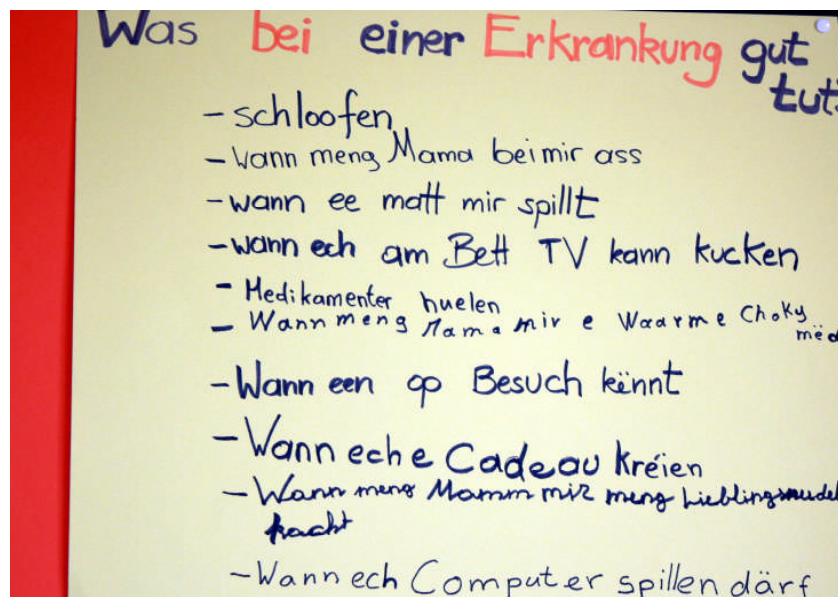 Was bei einer Erkrankung gut
tut:
- schloofen
- Wann meng Mama bei mir ass
- wann ee matt mir spillt
- wann ech am Bett TV kann kucken
- Medikamenter huelen
- Wann meng Mama mir e Waarme Choky
mëc
- Wann een op Besuch kënnt
- Wann ech e Cadeau kréien
- Wann meng Mamm mir meng Lieblingsnudel
kacht
- Wann ech Computer spillen därf